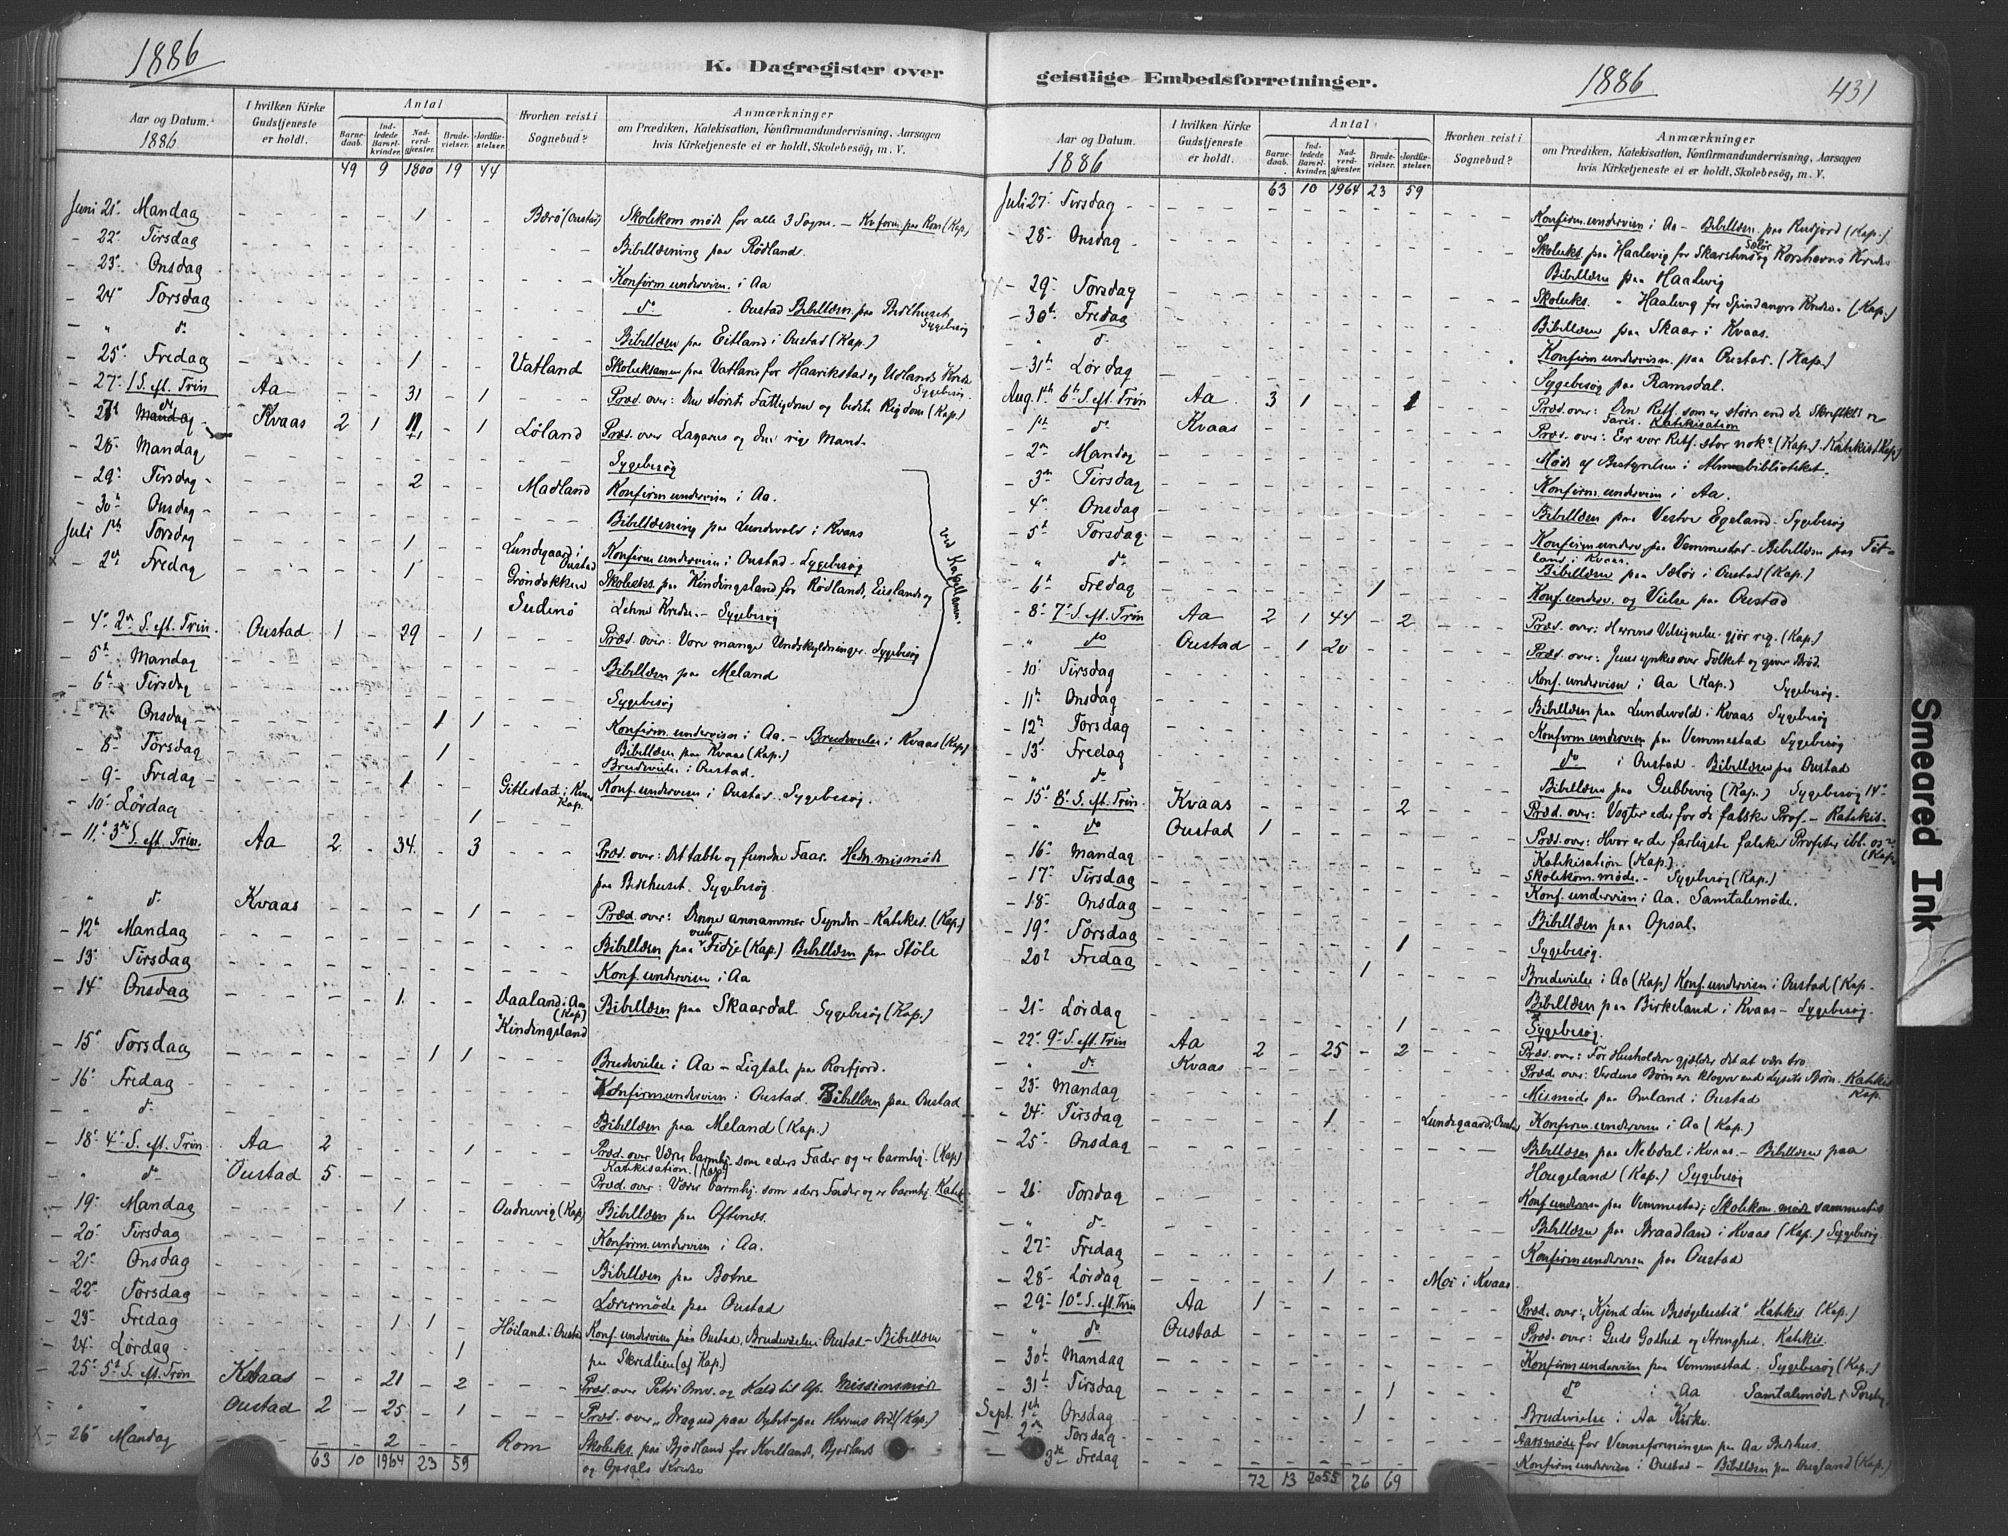 1886
K. Dagregister over
Aar og Datum.
1886
I hvilken Kirke Gudstjeneste er holdt.
Antal
Barne-daab.
Ind-ledede Barsel-kvinder.
Nad-verd-gjester.
Brude-vielser.
Jordfæ-stelser.
Hvorhen reist i Sognebud?
Anmærkninger
om Prædiken, Katekisation, Konfirmandundervisning, Aarsagen
hvis Kirketjeneste ei er holdt, Skolebesøg, m. V.
49 9 1800 19 44
Juni 21 Mandag - - 1 - - Skolekom møde for alle 3 Sogne. - (Kap)
22 Tirsdag Bibellæsning paa Rødland.
23 Onsdag Konfirm.undervisn. i Aa
24 Torsdag do Oustad Bibellæsn paa Bedehuset Sygebesøg
" do Bibellæsn paa Eitland i Oustad (Kap.)
25 Fredag - - 1 - - Vatland
27 1 S. eft. Trin Aa - - 31 - 1 Præd. over: Den største Fattigdom og bedste Rigdom (Kap)
do Kvaas 2 1 Løland Præd. over Lazarus og den rige Mand.
28 Mandag Sygebesøg
29 Tirsdag - - 2 - - Madland Konfirm undervisn i Aa.
30 Onsdag Bibellæsning paa Lundevold i Kvaas
Juli 1 Torsdag - - 1 - - Lundegaard i Oustad Konfirm undervisn i Oustad - Sygebesøg
2 Fredag - - 1 - - Skoleeks. paa Kindingsland for Rødlands,
Lehne Kredse. - Sygebesøg
4 2 S. eft. Trin. Oustad 1 - 29 - 1 Præd. over: Vore mange Undskyldninger. Sygebesøg
5 Mandag Bibellæsn paa Meland
6 Tirsdag Sygebesøg
7 Onsdag - - - 1 1 Konfirm. undervisn i Aa. - Brudevielse i Kvaas (Kap)
Bibellæsn paa Kvaas (Kap.)
8 Torsdag - - - 1 - Brudevielse i Oustad.
9 Fredag - - 1 - - Gitlestad i Kvaas Kap. Konf. undervisn i Oustad. Sygebesøg.
10 Lørdag - - - - 1
11 3 S. eft Trin. Aa 2 - 34 - 3 Præd. over: Det tabte og fundne Faar. Hedn mismøde
paa Bedehuset. Sygebesøg
" do Kvaas - - - - 1 Præd. over: Denne annammer Syndere - Katekis. (Kap)
12 Mandag Bibellæsn paa Fidje (Kap.) Bibellæsn paa Støle
13 Tirsdag Konf. undervisn i Aa
14 Onsdag - - 1 - - Daaland i Aa (Kap) Kindingsland Bibellæsn paa Skaardal Sygebesøg (Kap.)
15 Torsdag - - - 1 1 Brudevielse i Aa - Ligtale paa Rosfjord.
16 Fredag Konfirmundervisn i Oustad. Bibellæsn paa Oustad
" do Bibellæsn paa Meland (Kap.)
18 4 S. eft. Trin Aa 2 - - - 1 Præd. over Værer barmhj. som eders Fader og er barmhj. (Kap)
Katekisation. (Kap)
" do Oustad 5 Præd. over: Værer barmhj som eders Fader og er barmhj. Katek
19 Mandag - - 1 - - Oudnevig (Kap) Bibellæsn paa Oftenæs.
20 Tirsdag Konfirm. undervisn i Aa.
21 Onsdag Bibellæsn paa Botne
22 Torsdag Lærermøde paa Oustad
23 Fredag - - 1 1 - Høiland i Oustad Konf. undervisn paa Oustad. Brudevielse i Oustad - Bibellæsn
paa Skredlien (af Kap.)
24 Lørdag - - - - 1
25 5 S. eft Trin Kvaas - - 21 - 2 Præd. over Petri Omv. og Kald til Ap. Missionsmøde
" " Oustad 2 - 25 - 1 Præd. over (Kap.)
26 Mandag - - 2 - - Rom Skoleeks. paa Bjødland for Kvellands, Bjødlands
og Opsals Kredse
63 10 1964 23 59
ved Kapellanen.
geistlige Embedsforretninger.
1886
431
Aar og Datum.
1886
I hvilken Kirke Gudstjeneste er holdt.
Antal
Barne-daab.
Ind-ledede Barsel-kvinder.
Nad-verd-gjester.
Brude-vielser.
Jordfæ-stelser.
Hvorhen reist i Sognebud?
Anmærkninger
om Prædiken, Katekisation, Konfirmandundervisning, Aarsagen
hvis Kirketjeneste ei er holdt, Skolebesøg, m. V.
63 10 1964 23 59
Juli 27 Tirsdag Konfirm. undervisn i Aa - Bibellæsn paa (Kap.)
28 Onsdag Skoleeks. paa Haalevig for Korshavns Kredse
Bibellæsn paa Haalevig
29 Torsdag Skoleeks. " Haalevig for Spindangers Kredse. (Kap.)
30 Fredag Bibellæsn paa Skaar i Kvaas.
" do Konfirm undervisn. paa Oustad. (Kap.)
31 Lørdag Sygebesøg paa Ramsdal.
Aug. 1 6 S. eft. Trin Aa 3 1 - - 1 Præd. over: Den Retf. som er større end de Skriftkl og
Faris. Katekisation
1 do Kvaas Præd. over: Er vor Retf. stor nok? (Kap.) Katekisat (Kap)
2 Mandag Møde af Bestyrelsen i Almuebiblioteket.
3 Tirsdag Konfirm undervisn i Aa.
4 Onsdag Bibellæsn paa Vestre Egeland. Sygebesøg
5 Torsdag Konfirm underv. paa Vemmestad - Bibellæsn paa Tit-
land i Kvaas.
" do Bibellæsn paa Sælør i Oustad (Kap.)
6 Fredag - - - 1 - Konf. underv. og Vielse paa Oustad
8 7 S. eft Trin Aa 2 1 44 - 2 Præd. over: Herrens Velsignelse gjør rig. (Kap.)
" do Oustad - 1 20 Præd. over: Jesu ynkes over Folket og giver Brød.
10 Tirsdag Konf. undervisn i Aa (Kap.) Sygebesøg.
11 Onsdag Bibellæsn paa Lundevold i Kvaas Sygebesøg
12 Torsdag Konfirm undervisn paa Vemmestad Sygebesøg
13 Fredag do i Oustad - Bibellæsn paa Oustad
" do Bibellæsn paa Gubbevig (Kap.) Sygebesøg 14
15 8 S. eft. Trin Kvaas - - - - 2 Præd. over: Vogter eder for de falske Prof. - Katekis.
" do Oustad 1 Præd. over: Hvor er de farligste falske Profeter ibl. os? (Kap)
Katekisation (Kap.)
16 Mandag Skolekom. møde. - Sygebesøg (Kap.)
17 Tirsdag Konf. undervisn i Aa. Samtalemøde.
18 Onsdag Bibellæsn paa Opsal.
19 Torsdag - - - - 1 Sygebesøg.
20 Fredag - - - 1 - Brudevielse i Aa (Kap) Konf. undervisn i Oustad (Kap
Bibellæsn paa Birkeland i Kvaas - Sygebesøg.
21 Lørdag - - - - 1 Sygebesøg.
22 9 S. eft. Trin Aa 2 - 25 - 2 Præd. over: For Husholdere gjælder det at være tro
do Kvaas Præd over: Verdens Børn ere klogere end Lysets Børn. Katekis Kap.
23 Mandag Mismøde paa Omland i Oustad
24 Tirsdag - - 1 - - Lundegaard i Oustad Konfirm. undervisn i Aa (Kap.)
25 Onsdag Bibellæsn paa Nebdal i Kvaas - Bibellæsn paa
Haugeland (Kap.) Sygebesøg
26 Torsdag Konf undervisn paa Vemmestad; Skolekom. møde sammesteds
" do Bibellæsn paa Braadland i Kvaas (Kap.) Sygebesøg
27 Fredag Konfirmundervisn paa Oustad
28 Lørdag - - 1 - - Moi i Kvaas
29 10 S. eft Trin Aa 1 Præd. over: "Kjend din Besøgelsestid" Katekis (Kap.)
" do Oustad Præd over: Guds Godhed og Strenghed. Katekis.
30 Mandag Konfirm undervisn paa Vemmestad. Sygebesøg (Kap.)
31 Tirsdag - - - - 1 do i Aa Samtalemøde
Sept. 1 Onsdag - - - 1 - Brudevielse i Aa Kirke.
2 Torsdag Aarsmøde for Venneforeningen paa Aa Bedehus.
3 Fredag Konfirmundervisn i Oustad - Bibellæsn paa Ougland (Kap.)
72 13 2055 26 69
Smeared Ink